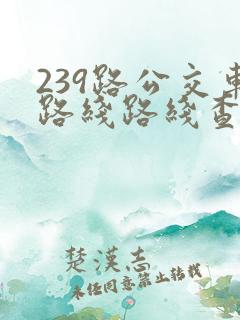 239路公交車
路綫路綫查
楚漢志
未经同意禁止转载